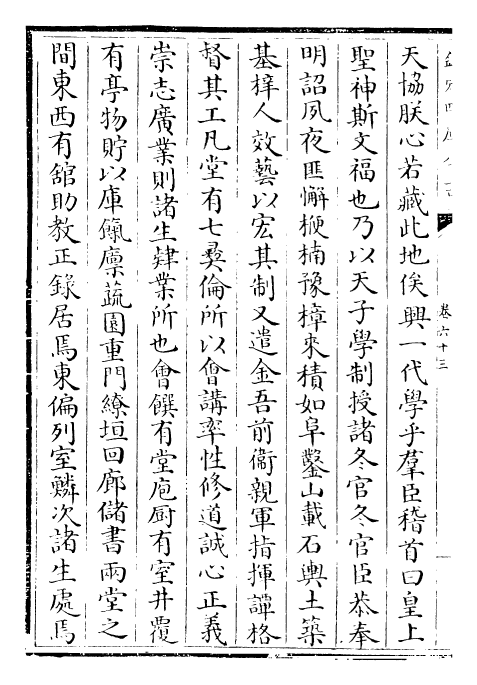 天協朕心若藏此地俟興一代學乎羣臣稽首曰皇上
聖神斯文福也乃以天子學制授諸冬官冬官臣恭奉
明詔夙夜匪懈楩楠豫樟來積如阜鑿山載石輿土築
基梓人效藝以宏其制又遣金吾前衞親軍指揮譚格
督其工凡堂有七彛倫所以會講率性修道誠心正義
崇志廣業則諸生肄業所也會饌有堂庖厨有室井覆
有亭物貯以庫餼廪蔬園重門繚垣回廊儲書兩堂之
間東西有舘助教正錄居焉東偏列室鱗次諸生處焉
卷六十三